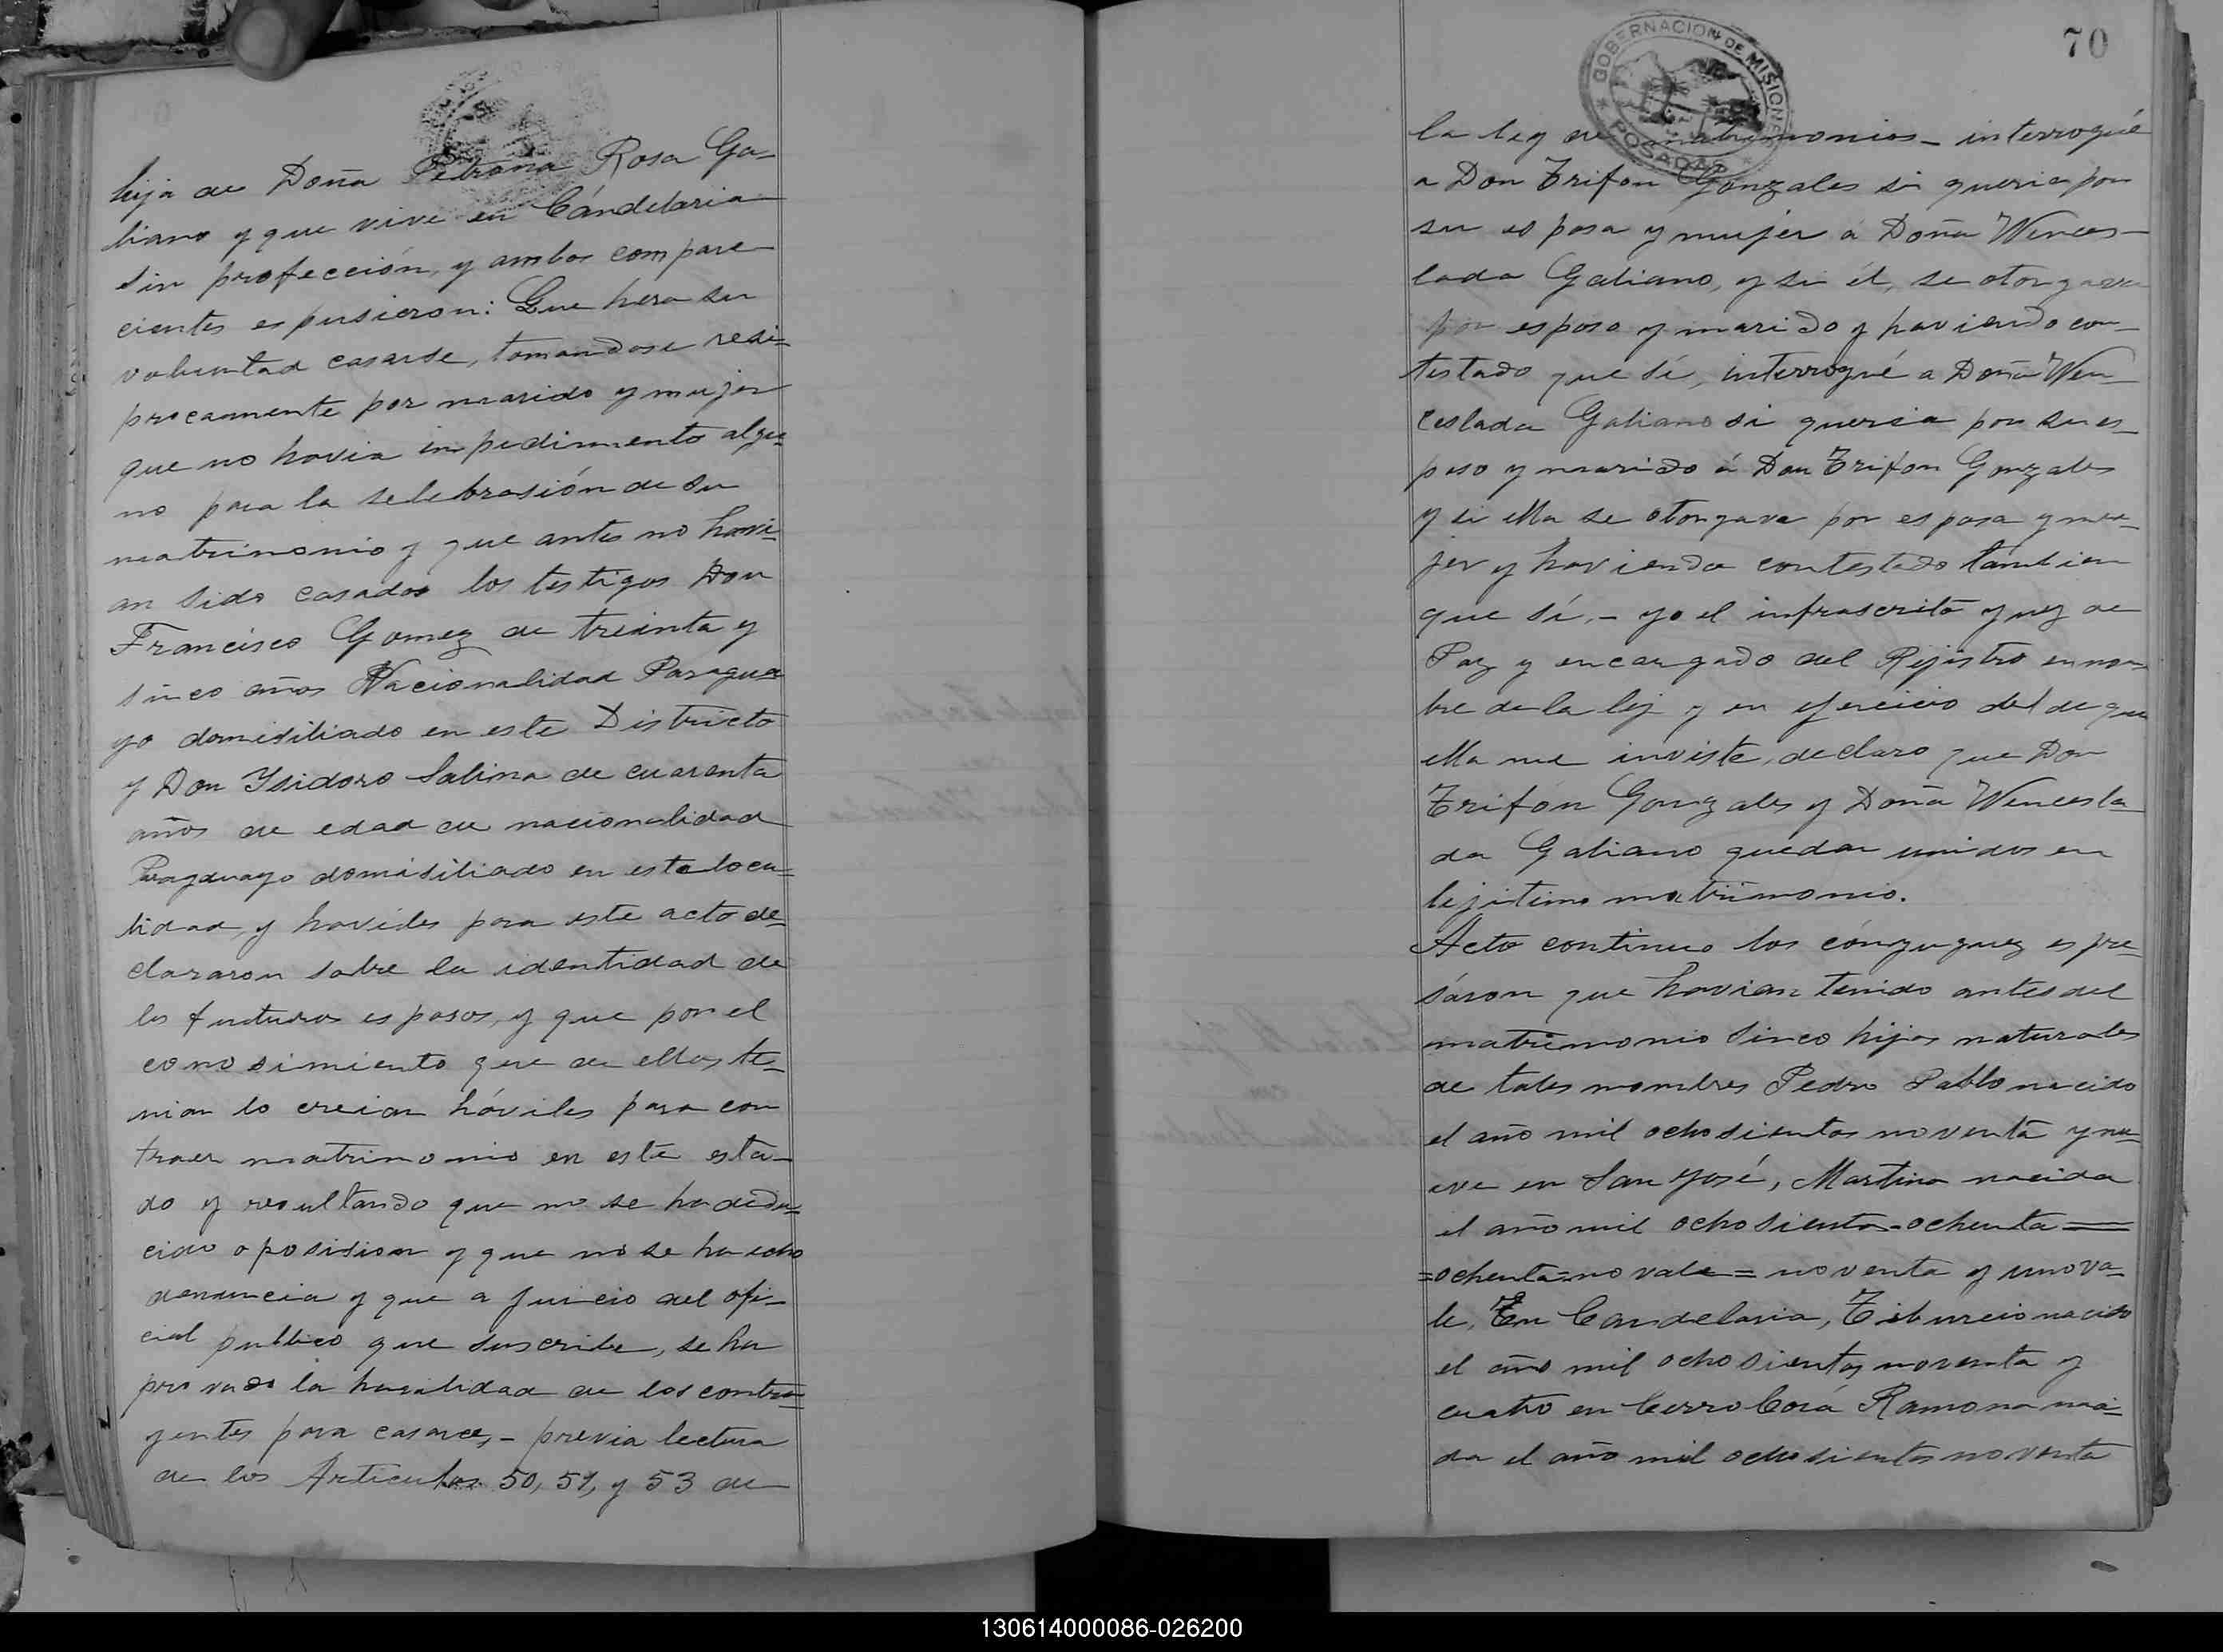 hija de Doña Petrona Rosa Ga-
liano y que vive en Candelaria
sin profección, y ambos compare-
cientes espusieron: Que hera su
voluntad casarse, tomandose resi=
procamente por marido y mujer
que no havia inpedimento algu=
no para la selebrasión de su
matrimonio y que antes no havi=
an sido casados los testigos Don
Francisco Gomez de treinta y
sinco años Nacionalidad Paragua
yo domisiliado en este Districto
y Don Ysidoro Salina de cuarenta
años de edad de nacionalidad
Paraguayo domisiliado en esta loca=
lidad, y haviles para este acto de=
clararon sobre la identidad de
los futuros esposos, y que por el
conosimiento que de ellos te=
nian lo creian háviles para con
traer matrimonio en este esta-
do y resultando que no se ha dedu=
cido oposision y que no se ha echo
denuncia y que a juicio del ofi-
cial publico que suscribe, se ha
provado la havilidad de los contra=
yentes para casarce,- previa lectura
de los Articulos 50, 51, y 53 de
70
GOBERNACION DE MISIONES
* POSADAS *
la ley de matrimonios- interrogué
a Don Trifon Gonzales si queria por
su esposa y mujer á Doña Wences-
lada Galiano, y si él, se otorgava
por esposo y marido y haviendo con-
testado que sí, interrogué a Doña Wen
ceslada Galiano si queria por su es-
poso y marido á Don Trifon Gonzales
y si ella se otorgava por esposa y mu-
jer y haviendo contestado tambien
que sí,- yo el infrascrito Juez de
Paz y encargado del Rejistro en nom
bre de la ley y en ejercicio del de que
ella me inviste, declaro que Don
Trifón Gonzales y Doña Wencesla-
da Galiano quedan unidos en
lejitimo matrimonio.
Acto continuo los cónyuguez espre-
sáron que havian tenido antes del
matrimonio sinco hijos naturales
de tales nombres Pedro Pablo nacido
el año mil ochosientos noventa y nu=
eve en San José, Martina nacida
el año mil ochosientos ochenta =
=ochenta=no vale= noventa y uno va-
le, En Candelaria, Tiburcio nacido
el año mil ochosientos noventa y
cuatro en Cerro Corá Ramona naci-
da el año mil ochosientos noventa
130614000086-026200